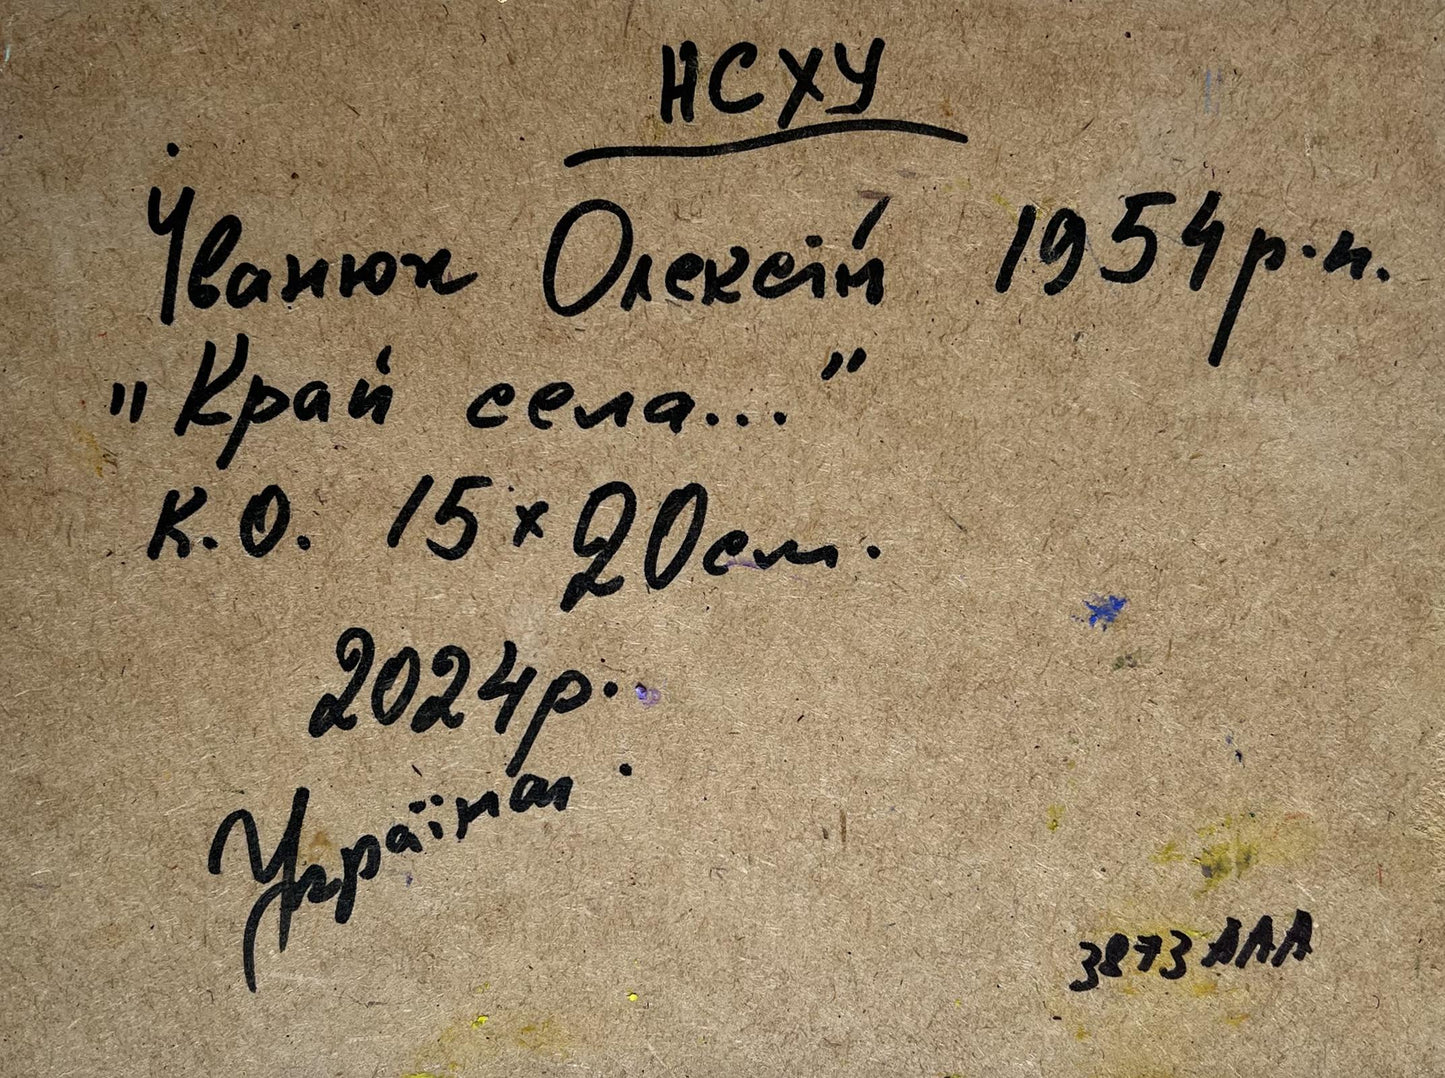 НСХУ
Іванюк Олексій 1954р.н.
"Край села..."
К.О. 15×20см.
2024р.
Україна.
3873 ААА